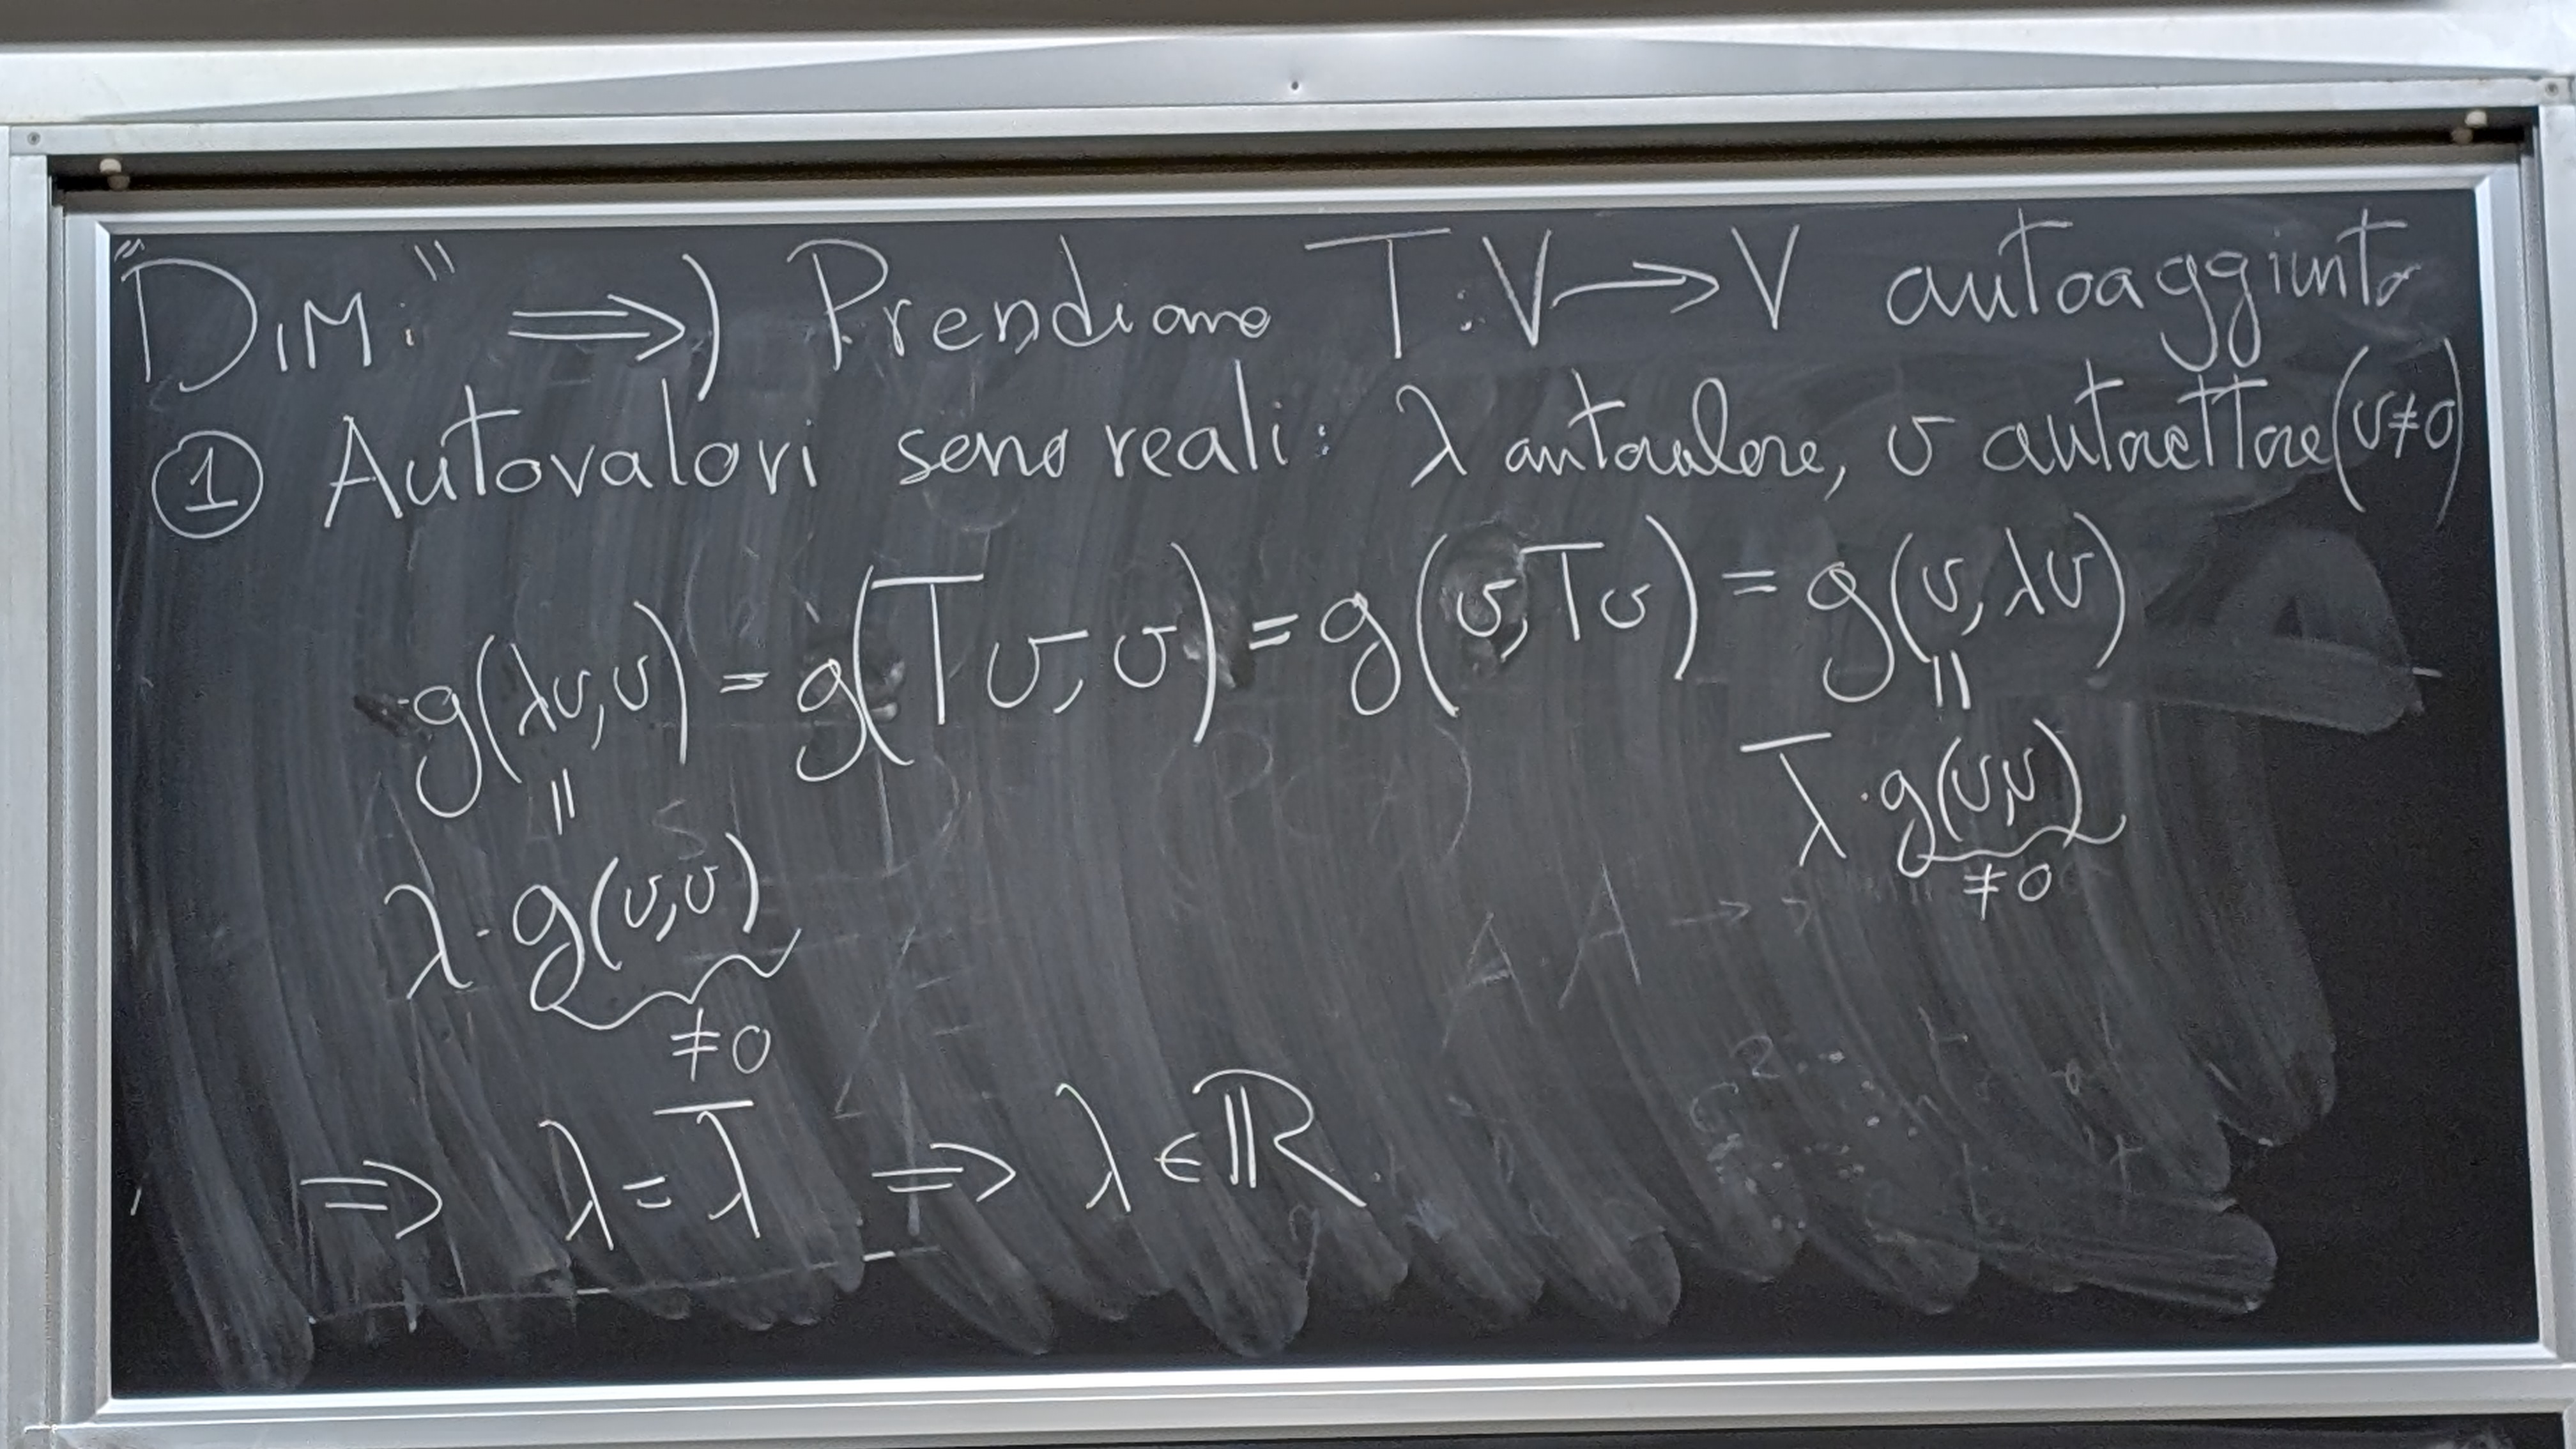 "DIM:" ⟹) Prendiamo T: V → V autoaggiunto
① Autovalori sono reali: λ autovalore, v autovettore (v≠0)
g(λv, v) = g(Tv, v) = g(v, Tv) = g(v, λv)
= =
λ · g(v,v) λ̅ · g(v,v)
≠0 ≠0
⟹ λ = λ̅ ⟹ λ ∈ ℝ